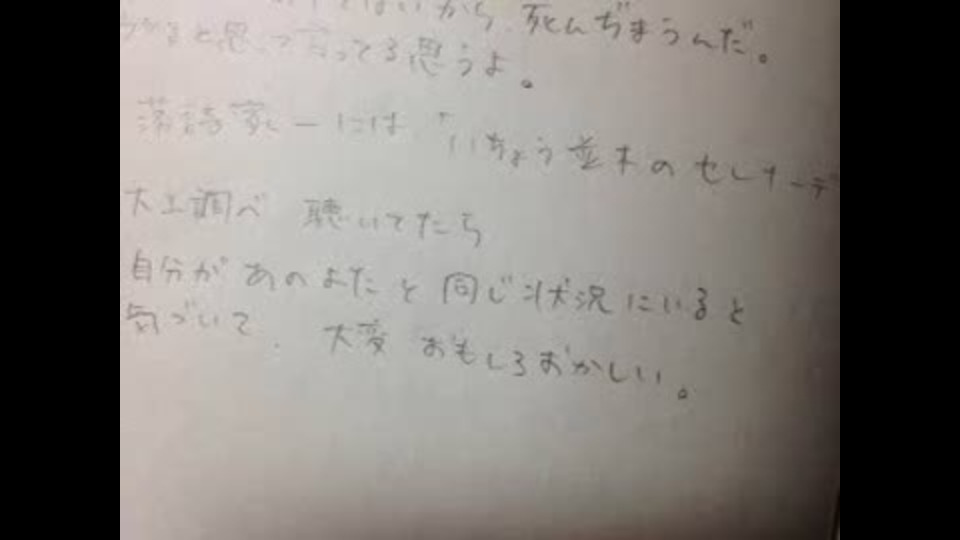 ないから、死んぢまうんだ。
と思って言ってる思うよ。
落語家一には「いちょう並木のセレナーデ
大工調べ 聴いてたら
自分が あのよたと同じ状況にいると
気づいて、大変 おもしろおかしい。